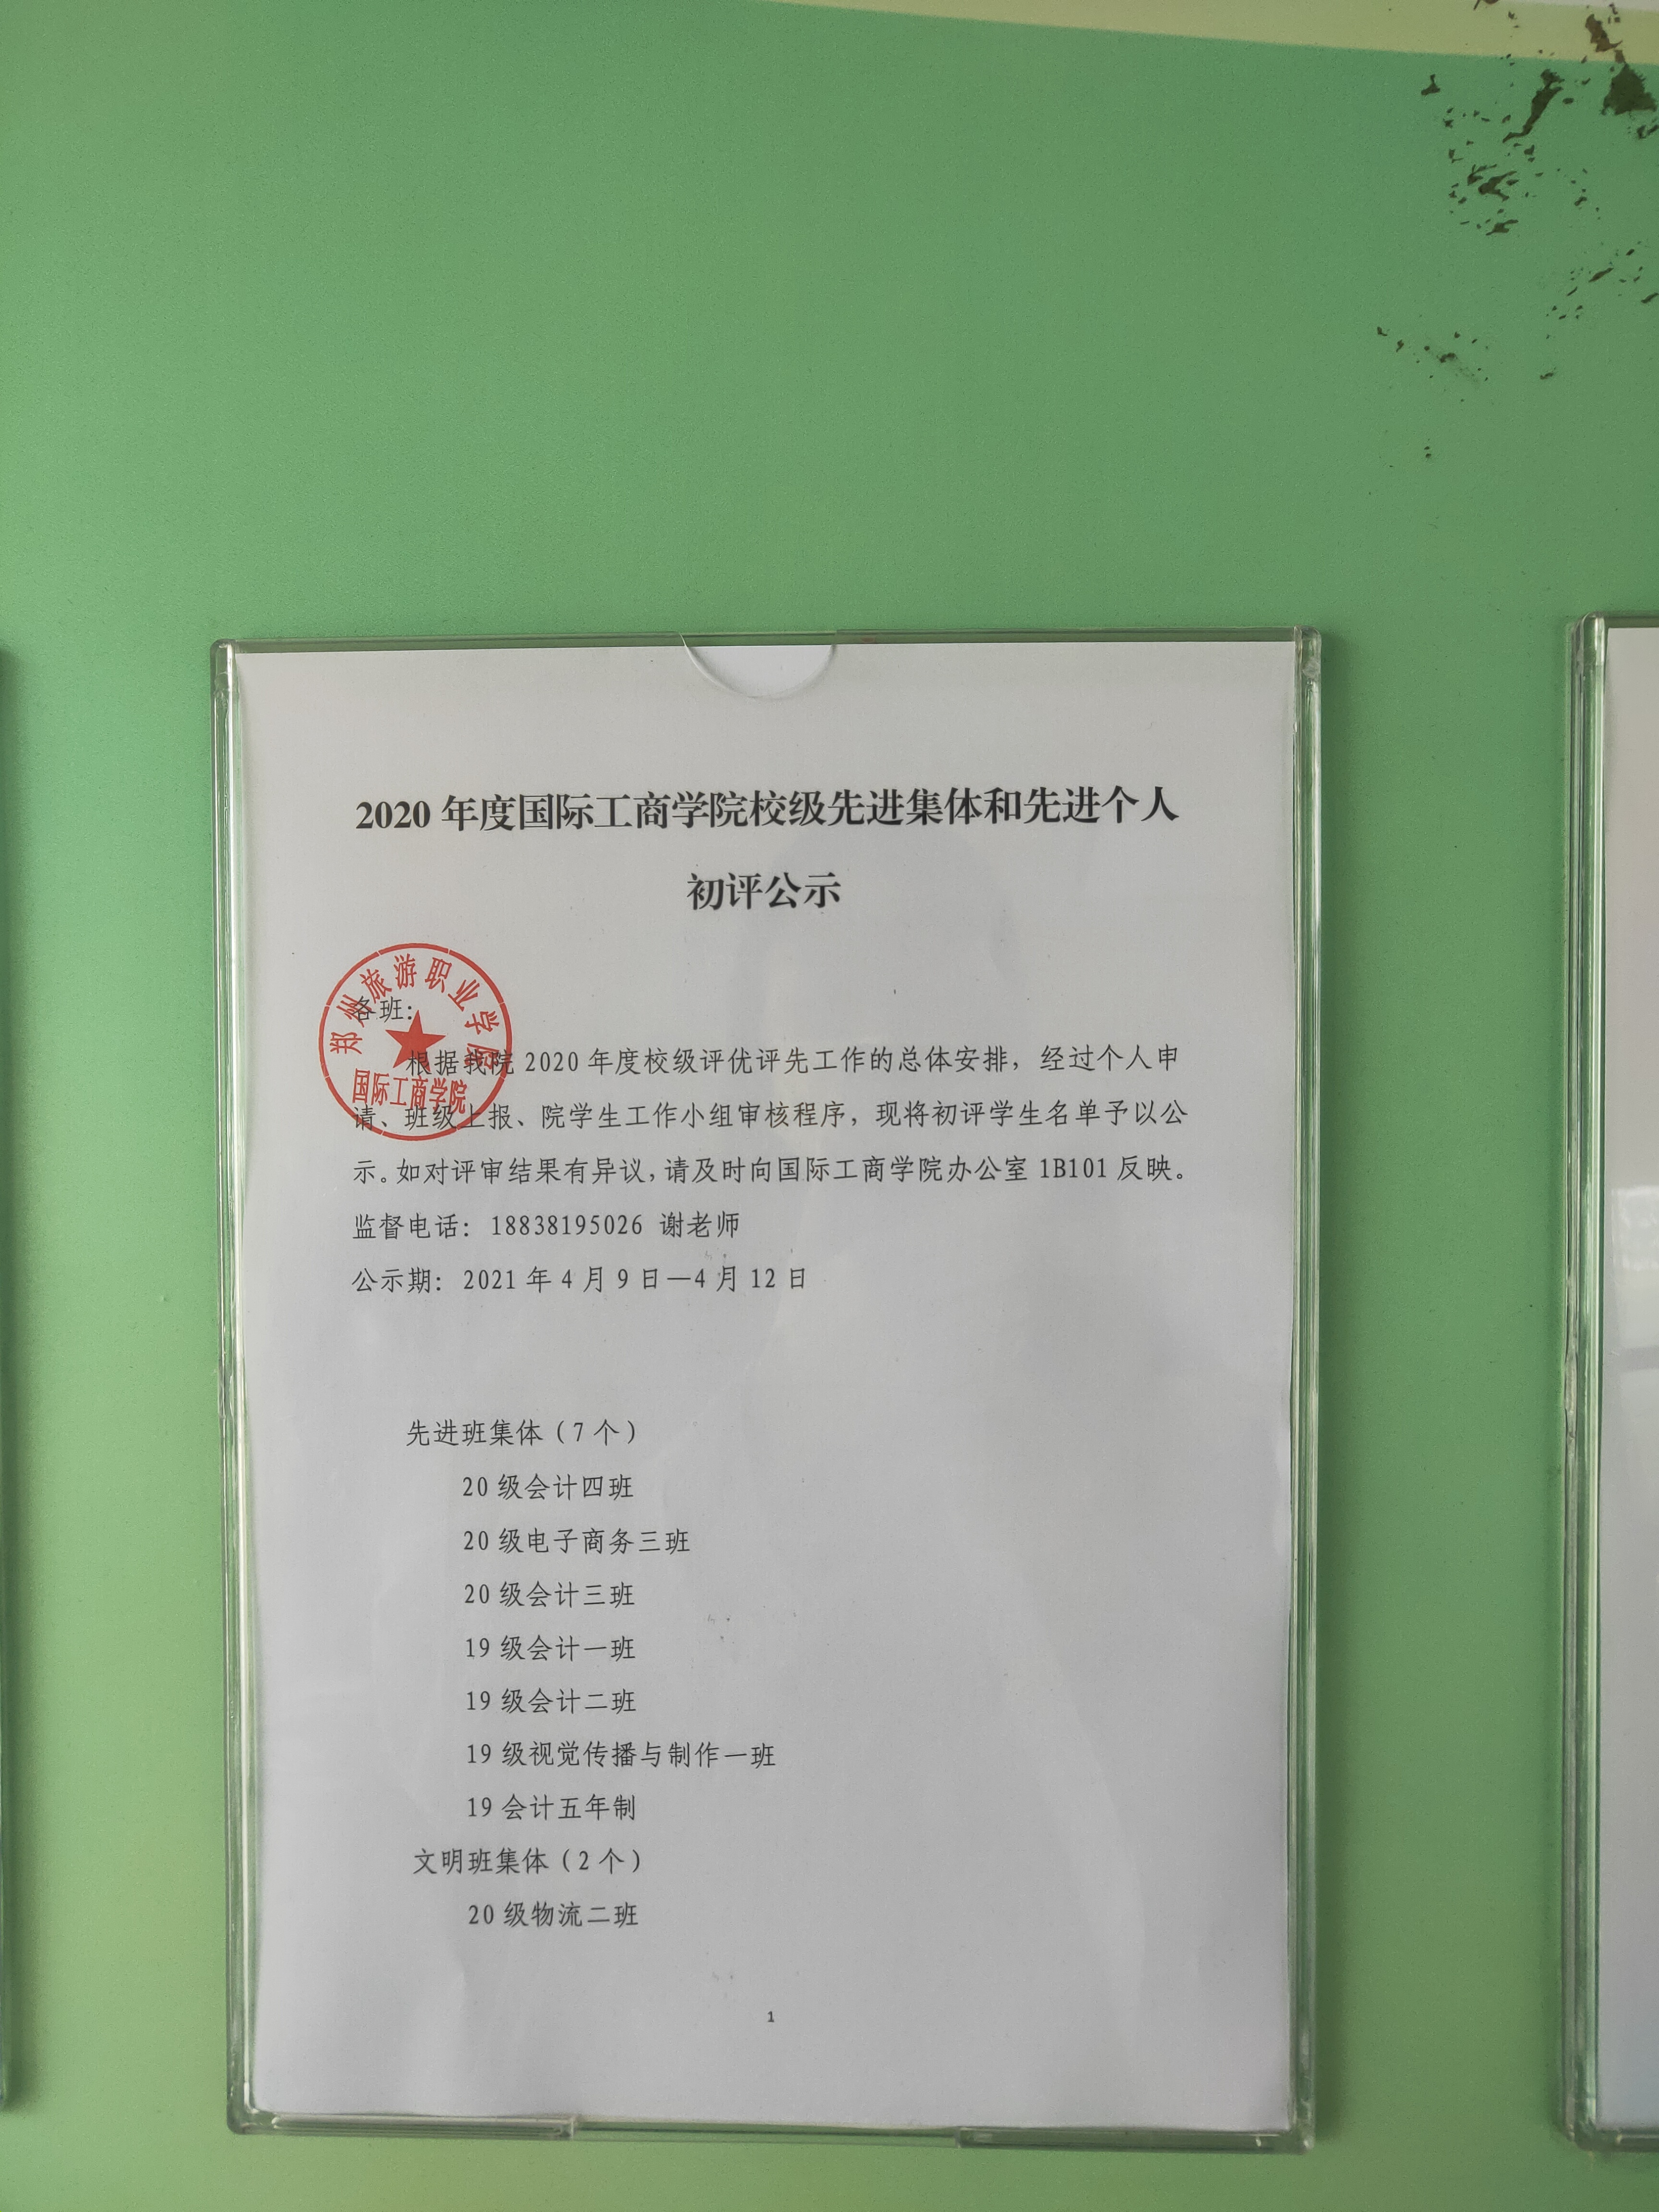 2020 年度国际工商学院校级先进集体和先进个人
初评公示
郑州旅游职业学院
国际工商学院
各班：
根据我院 2020 年度校级评优评先工作的总体安排，经过个人申
请、班级上报、院学生工作小组审核程序，现将初评学生名单予以公
示。如对评审结果有异议，请及时向国际工商学院办公室 1B101 反映。
监督电话：18838195026 谢老师
公示期：2021 年 4 月 9 日—4 月 12 日
先进班集体（7 个）
20 级会计四班
20 级电子商务三班
20 级会计三班
19 级会计一班
19 级会计二班
19 级视觉传播与制作一班
19 会计五年制
文明班集体（2 个）
20 级物流二班
1